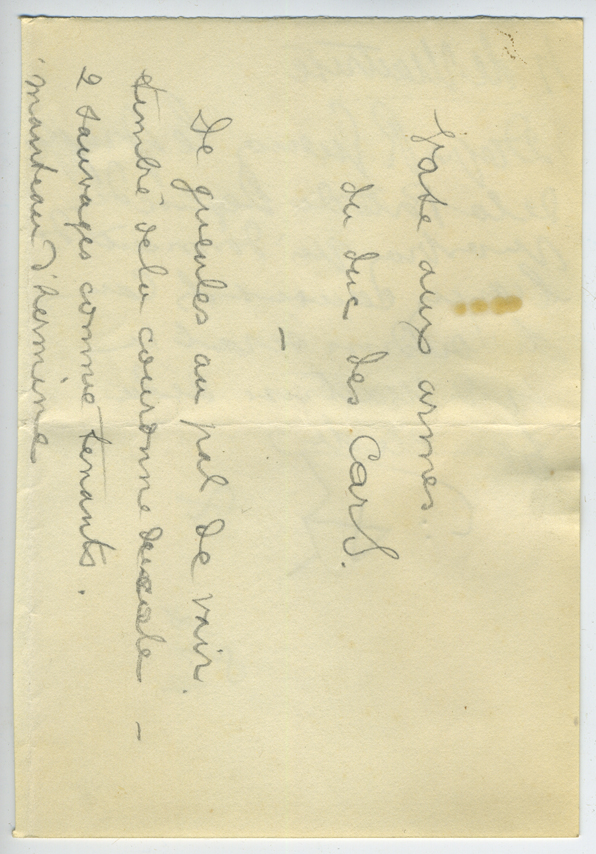 Vase aux armes
du duc des Cars.
—
De gueules au pal de vair.
timbré de la couronne ducale —
2 sauvages comme tenants.
manteau d'hermine